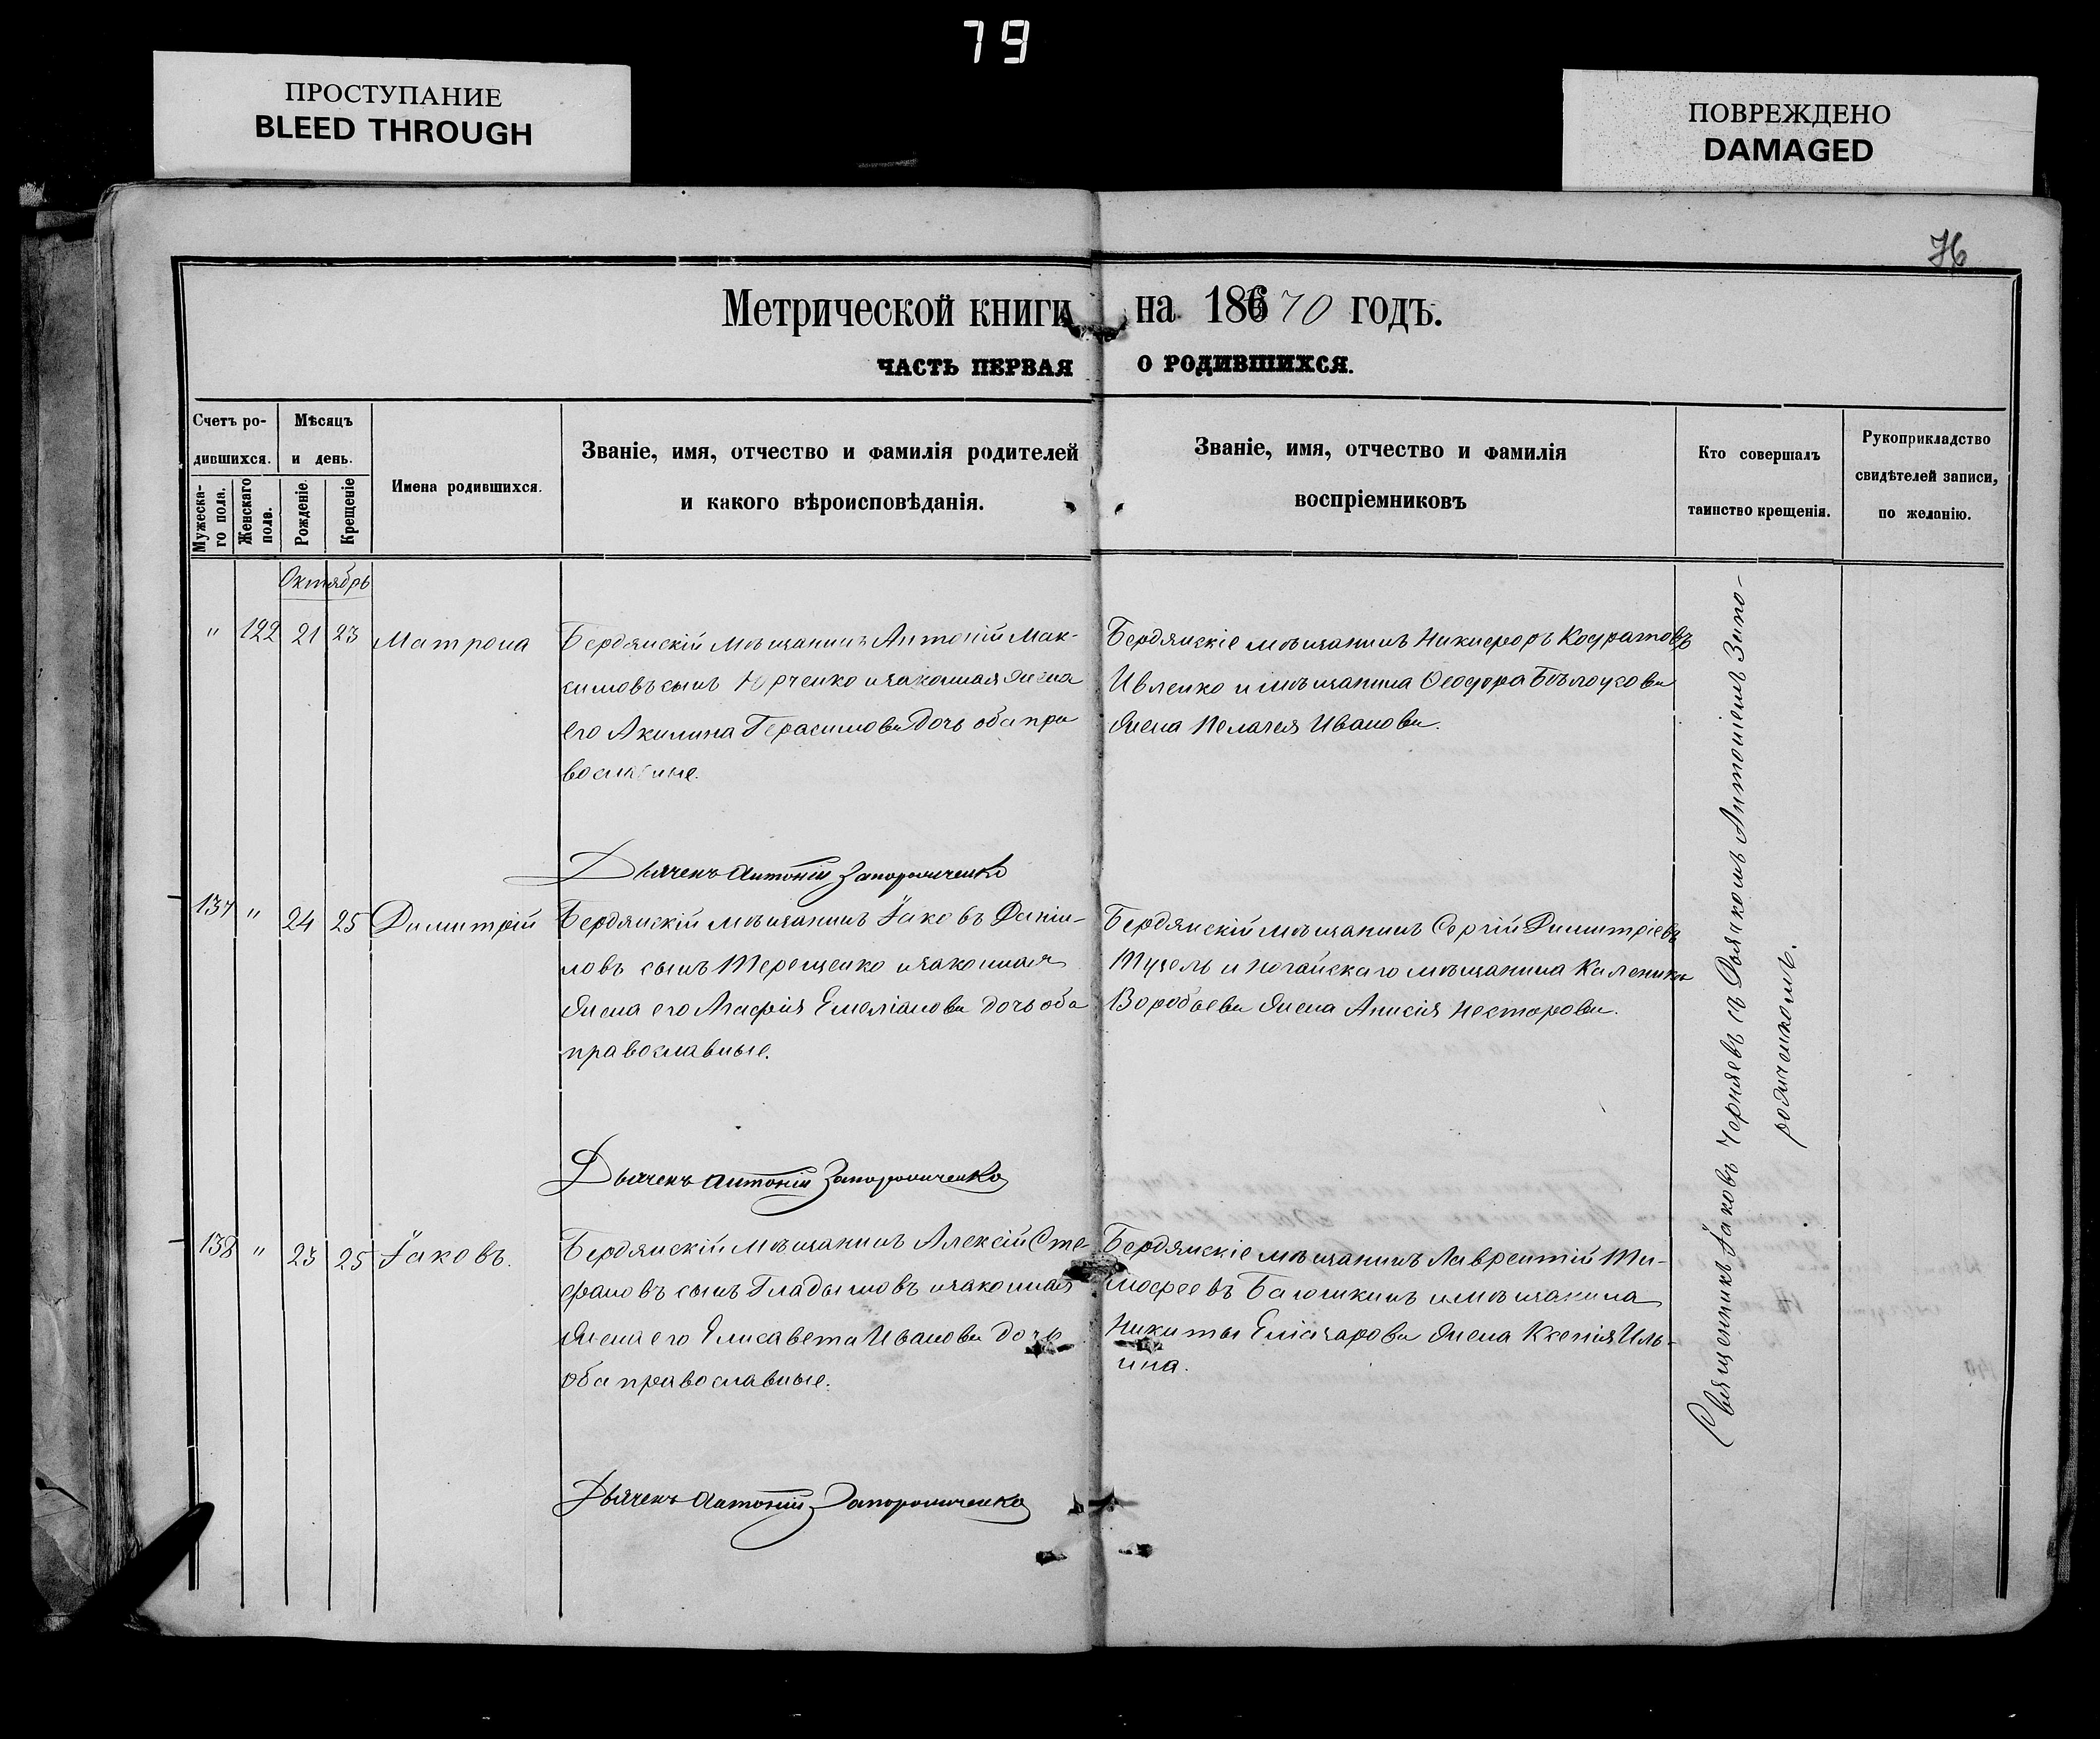 79
ПРОСТУПАНИЕ
BLEED THROUGH
ПОВРЕЖДЕНО
DAMAGED
76
Метрической книги на 18670 годъ.
ЧАСТЬ ПЕРВАЯ О РОДИВШИХСЯ.
Счетъ ро-
дившихся.
Мужеска-
го пола.
Женскаго
пола.
Мѣсяцъ
и день.
Рожденіе.
Крещеніе
Имена родившихся.
Званіе, имя, отчество и фамилія родителей
и какого вѣроисповѣданія.
Званіе, имя, отчество и фамилія
воспріемниковъ
Кто совершалъ
таинство крещенія.
Рукоприкладство
свидѣтелей записи,
по желанію.
Октябрь
" 122 21 23 Матрона
Бердянскій мѣщанинъ Антоній Мак-
симовъ сынъ Юрченко и законная жена
его Акилина Герасимова дочь оба пра
вославные.
Бердянскіе мѣщанинъ Никифоръ Кодратовъ
Ивленко и мѣщанина Ѳеодора Бѣлоусова
жена Пелагея Иванова.
Дьячекъ Антоній Запорожченко
137 " 24 25 Димитрій
Бердянскій мѣщанинъ Іаковъ Даніи-
ловъ сынъ Терещенко и законная
жена его Агафія Емеліанова дочь оба
православные.
Бердянскій мѣщанинъ Сергій Димитріевъ
Тузель и Ногайскаго мѣщанина Каленика
Воробьева жена Анисія Несторова.
Дьячекъ Антоній Запорожченко
138 " 23 25 Іаковъ.
Бердянскій мѣщанинъ Алексій Сте-
фановъ сынъ Гладышовъ и законная
жена его Елисавета Иванова дочь
оба православные.
Бердянскіе мѣщанинъ Лаврентій Ти-
мофеевъ Батюшкинъ и мѣщанина
Никиты жена Ксенія Иль-
ина.
Дьячекъ Антоній Запорожченко
Священникъ Іаковъ Чернявъ съ Дьякомъ Антоніемъ Запо-
рожченкомъ.